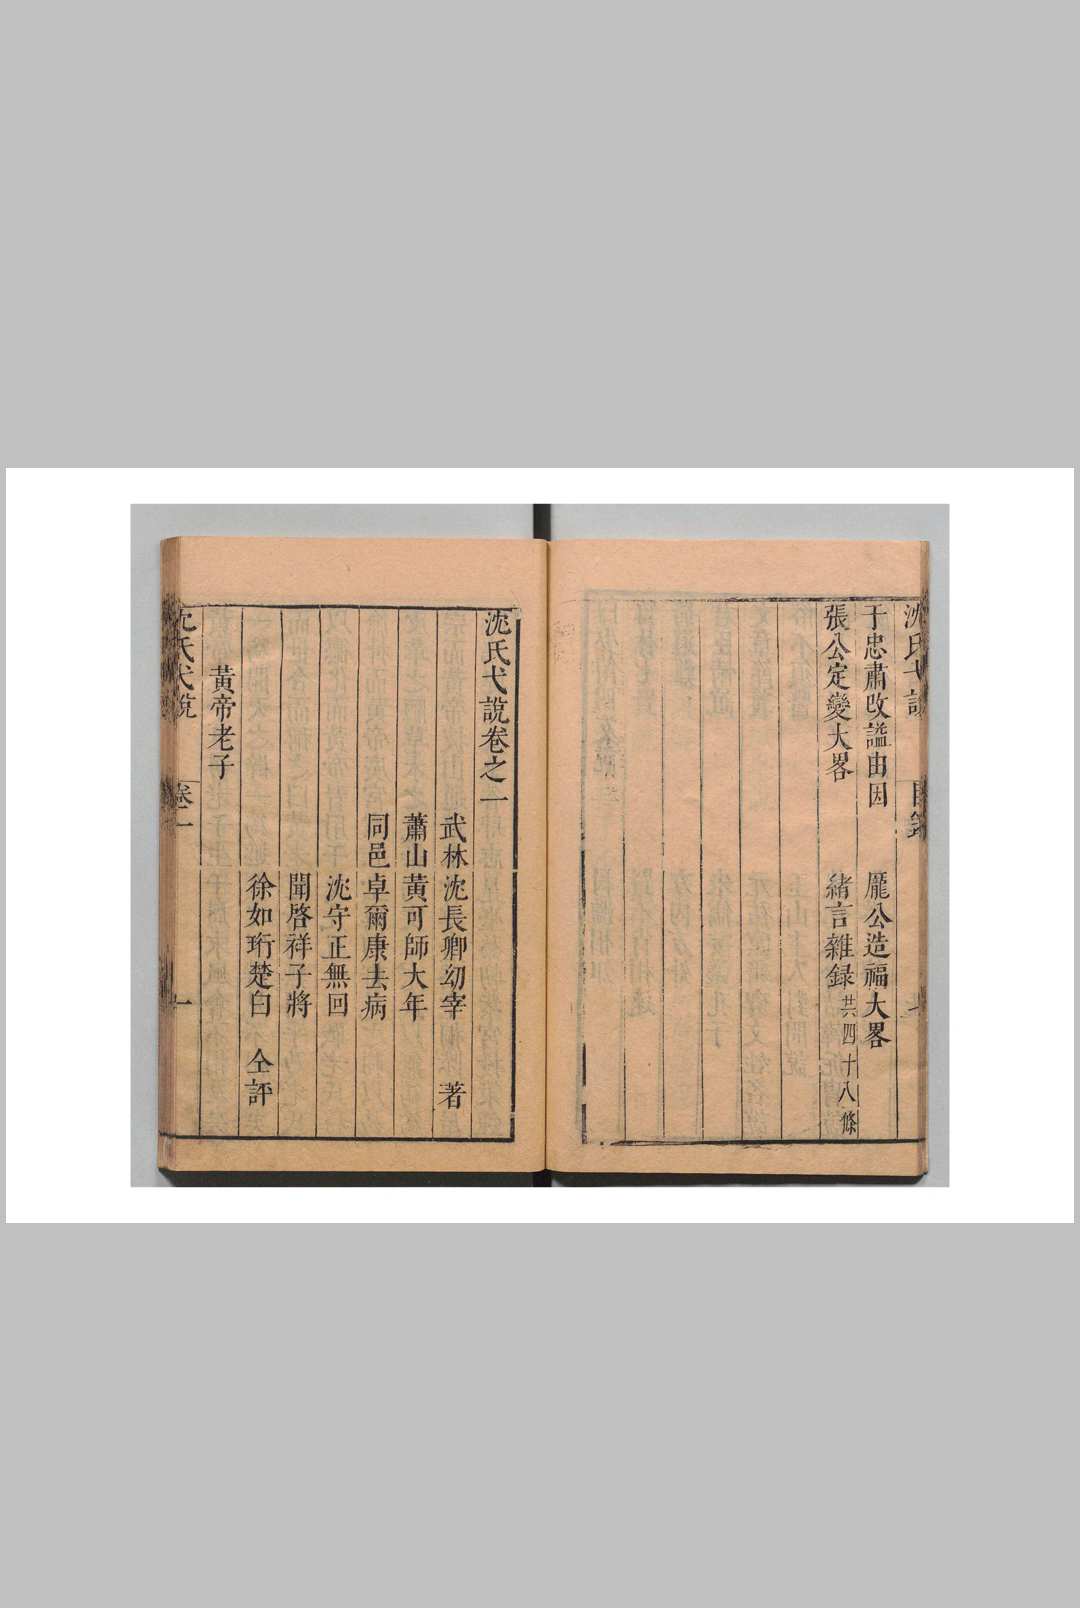 沈氏弋說 目錄
于忠肅改謚由因 龐公造福大畧
張公定變大畧 緒言雜録共四十八條
沈氏弋說卷之一
武林沈長卿幼宰 著
蕭山黃可師大年
同邑卓爾康去病
沈守正無回
聞啓祥子將
徐如珩楚白 仝評
黃帝老子
沈氏弋說 卷一 一